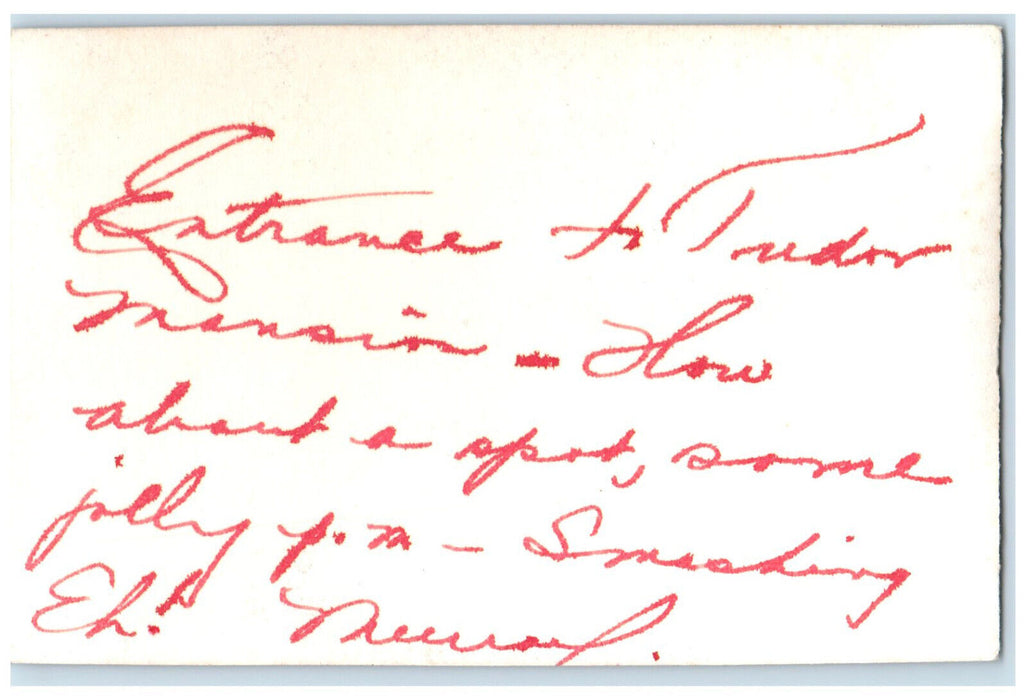 Entrance to Tudor
Mansion - How
about a spot, some
jolly p.m - Smashing
Eh!